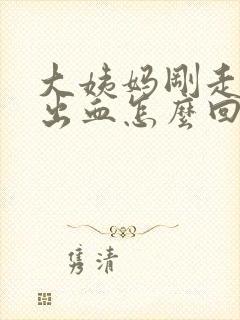 大姨妈刚走
出血怎麼回
隽清